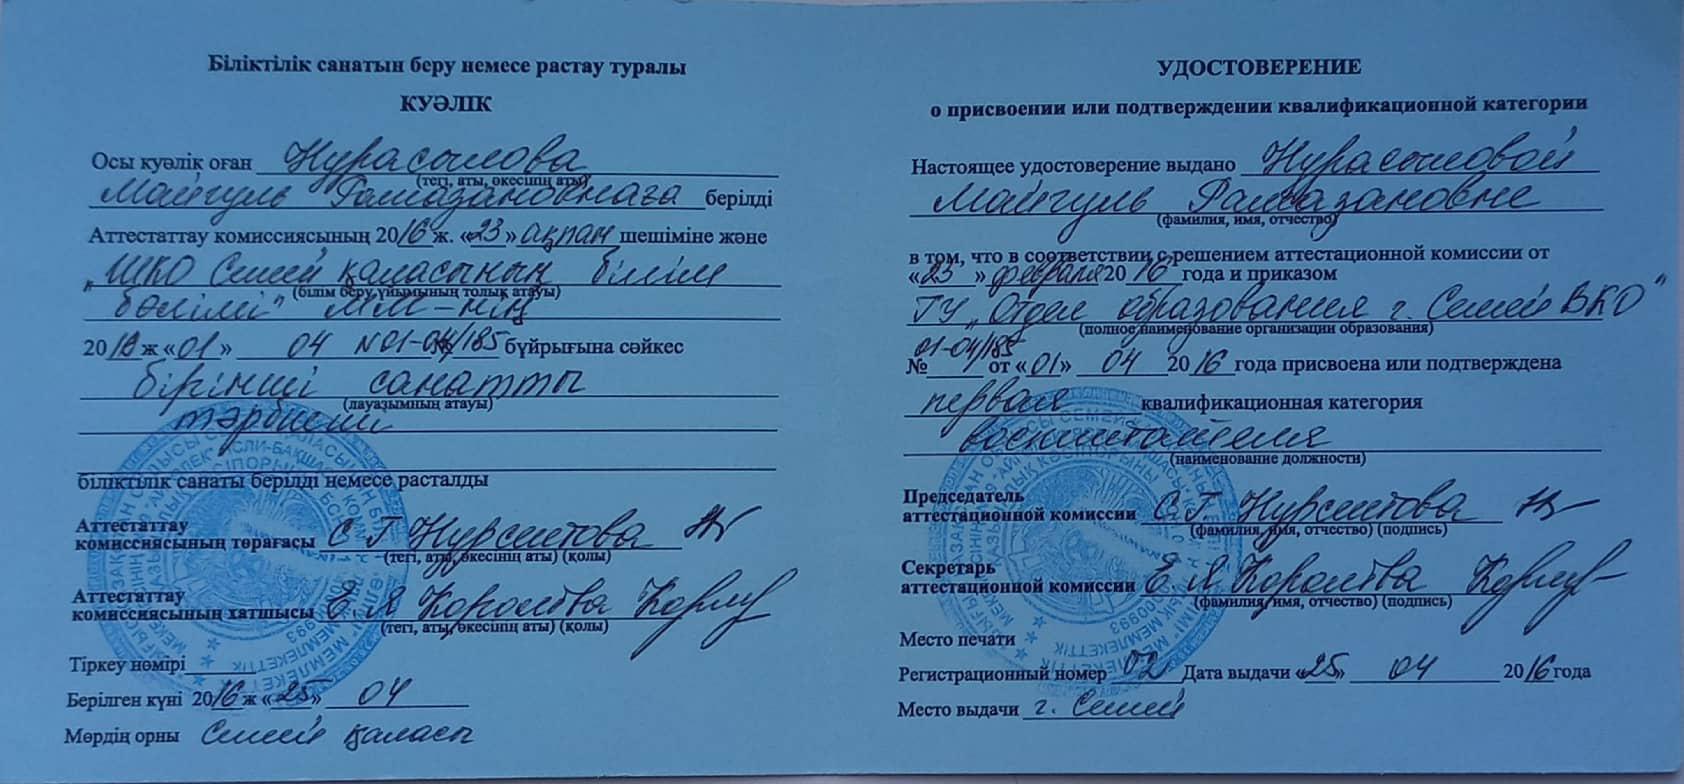 Біліктілік санатын беру немесе растау туралы
КУӘЛІК
Осы куәлік оған Нурасылова
(тегі, аты, әкесінің аты)
Майгуль Рамазановнаға берілді
Аттестаттау комиссиясының 2016 ж. «23» ақпан шешіміне және
"ШҚО Семей қаласының білім
(білім беру ұйымының толық атауы)
бөлімі" ММ-нің
2016 ж «01» 04 N01-04/185 бұйрығына сәйкес
бірінші санатты
(лауазымның атауы)
тәрбиеші
біліктілік санаты берілді немесе расталды
Аттестаттау
комиссиясының төрағасы С Г Нурсеитова
(тегі, аты, әкесінің аты) (қолы)
Аттестаттау
комиссиясының хатшысы Е. Я
(тегі, аты, әкесінің аты) (қолы)
Тіркеу нөмірі
Берілген күні 2016 ж «25» 04
Мөрдің орны Семей қаласы
УДОСТОВЕРЕНИЕ
о присвоении или подтверждении квалификационной категории
Настоящее удостоверение выдано Нурасыловой
Майгуль Рамазановне
(фамилия, имя, отчество)
в том, что в соответствии с решением аттестационной комиссии от
«23» февраля 2016 года и приказом
ГУ "Отдел образования г. Семей ВКО"
(полное наименование организации образования)
01-04/185
№ от «01» 04 2016 года присвоена или подтверждена
первая квалификационная категория
воспитателя
(наименование должности)
Председатель
аттестационной комиссии С.Г. Нурсеитова
(фамилия, имя, отчество) (подпись)
Секретарь
аттестационной комиссии Е Я
(фамилия, имя, отчество) (подпись)
Место печати
Регистрационный номер 02 Дата выдачи «25» 04 2016 года
Место выдачи г. Семей